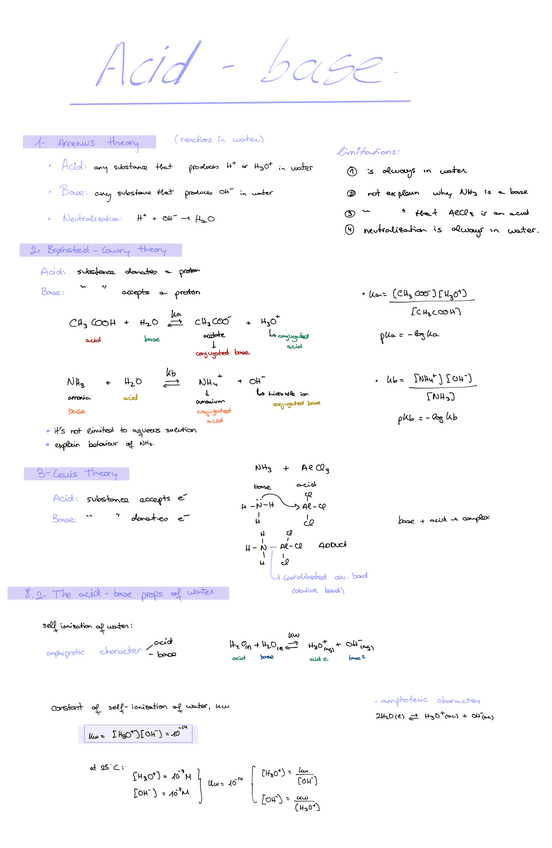 Acid - base.
1- Arrenius theory (reactions in water)
· Acid: any substance that produces H⁺ or H₃O⁺ in water
· Base: any substance that produces OH⁻ in water
· Neutralization: H⁺ + OH⁻ → H₂O
limitations:
① is always in water
② not explain why NH₃ is a base
③ " " that AlCl₃ is an acid
④ neutralization is always in water.
2- Brønsted - Lowry theory
Acid: substance donates a proton
Base: " " accepts a proton
CH₃COOH + H₂O ⇌ CH₃COO⁻ + H₃O⁺
Ka
acid base acetate ↳ conjugated acid
↓
conjugated base
NH₃ + H₂O ⇌ NH₄⁺ + OH⁻
Kb
amonia acid ↓ ↳ hidroxide ion
base amonium conjugated base
conjugated acid
• it's not limited to aqueous solution
• explain behaviour of NH₃.
• Ka = [CH₃COO⁻][H₃O⁺]
[CH₃COOH]
pKa = -log Ka
• Kb = [NH₄⁺][OH⁻]
[NH₃]
pKb = -log Kb
3- Lewis Theory
Acid: substance accepts e⁻
Base: " " donates e⁻
NH₃ + AlCl₃
base acid
Cl
H - N - H Al - Cl
H Cl
H Cl
H - N - Al - Cl ADDUCT
H Cl
↳ coordinated cov. bond
(dative bond)
base + acid → complex
8.2- The acid - base props of water
self ionisation of water:
amphiprotic character acid
- base
H₂O(l) + H₂O(l) ⇌ H₃O⁺(aq) + OH⁻(aq)
Kw
acid base acid 2 base 2
constant of self-ionisation of water, Kw
Kw = [H₃O⁺][OH⁻] = 10⁻¹⁴
· amphoteric character
2H₂O(l) ⇌ H₃O⁺(aq) + OH⁻(aq)
at 25°C:
[H₃O⁺] = 10⁻⁷ M
[OH⁻] = 10⁻⁷ M
Kw = 10⁻¹⁴
[H₃O⁺] = Kw
[OH⁻]
[OH⁻] = Kw
[H₃O⁺]